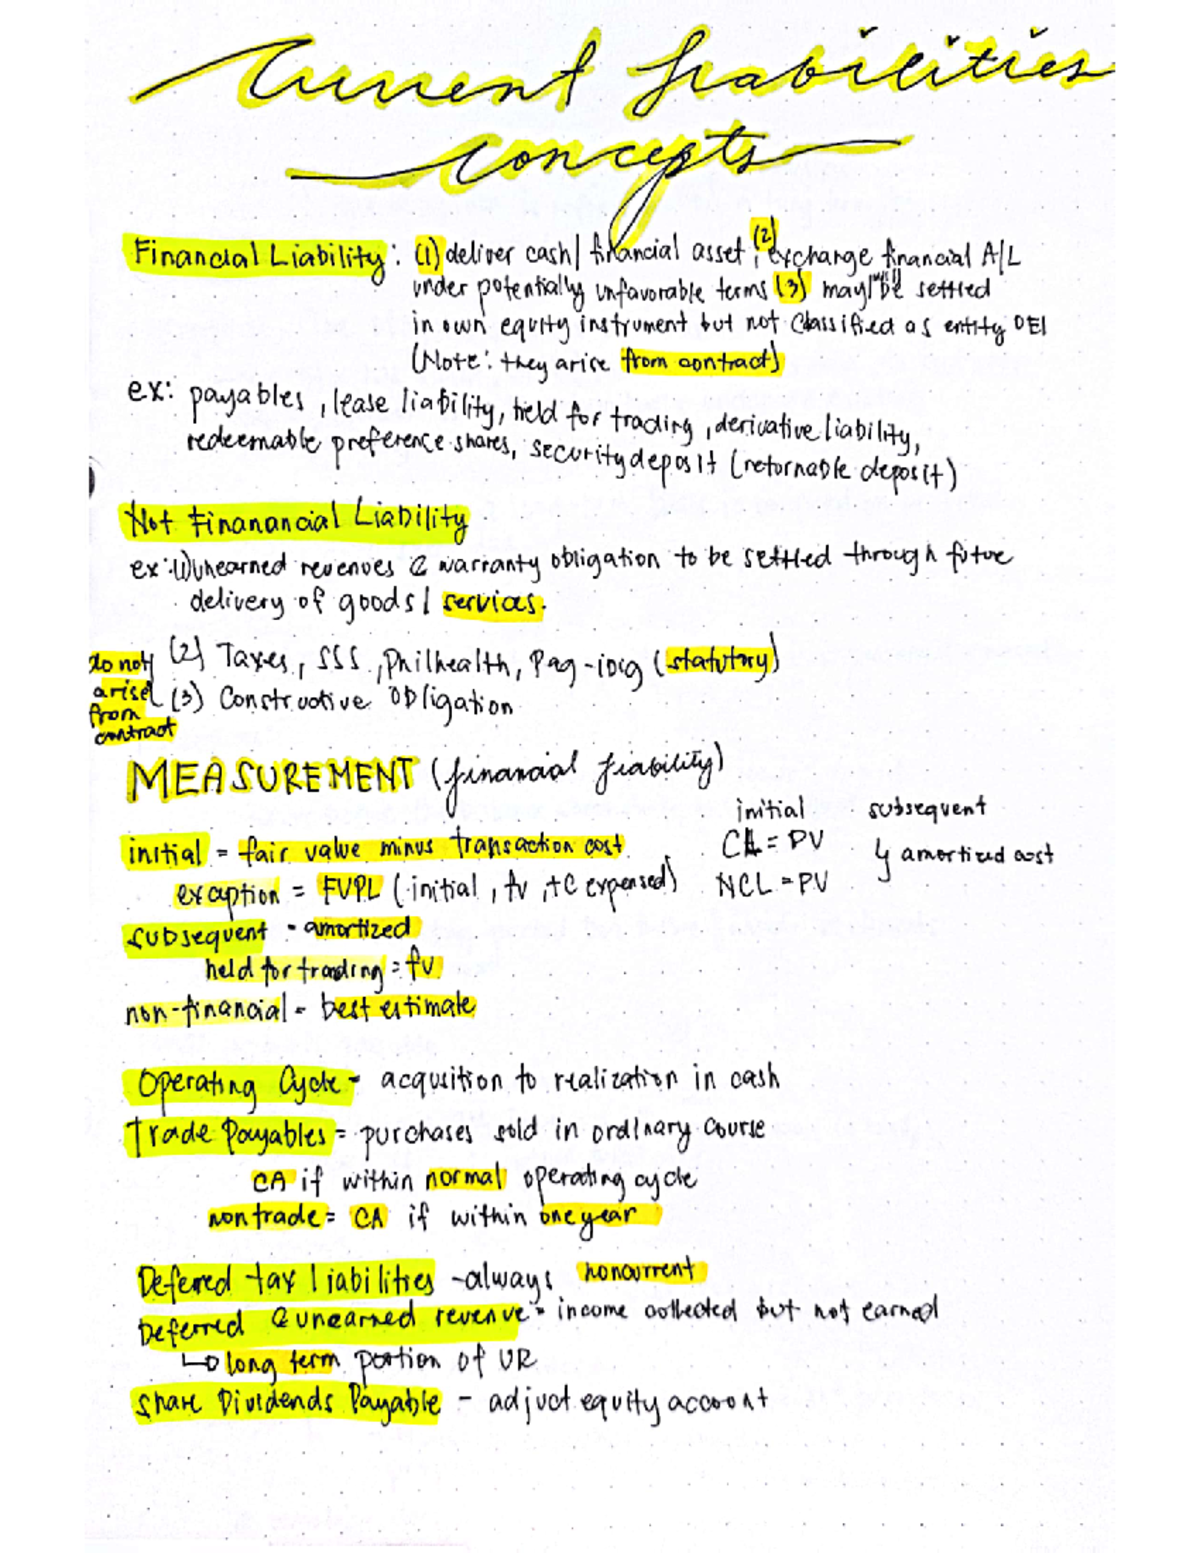 Current Liabilities
concepts
Financial Liability: (1) deliver cash/ financial asset, (2) exchange financial A/L
under potentially unfavorable terms (3) may/will be settled
in own equity instrument but not classified as entity OEI
(Note: they arise from contract)
ex: payables, lease liability, held for trading, derivative liability,
redeemable preference shares, security deposit (returnable deposit)
Not Finanancial Liability
ex: (1) unearned revenues & warranty obligation to be settled through future
delivery of goods/ services.
do not arise from contract
(2) Taxes, SSS, Philhealth, Pag-ibig (statutory)
(3) Constructive obligation
MEASUREMENT (financial liability)
initial subsequent
initial = fair value minus transaction cost CL = PV
amortized cost
exception = FVPL (initial, fv, tc expensed) NCL = PV
subsequent - amortized
held for trading = fv
non-financial - best estimate
Operating Cycle - acqusition to realization in cash
Trade Payables = purchases sold in ordinary course
CA if within normal operating cycle
nontrade = CA if within one year
Deferred tax liabilities - always noncurrent
Deferred & unearned revenue - income collected but not earned
↳ long term portion of UR
Share Dividends Payable - adjust equity account